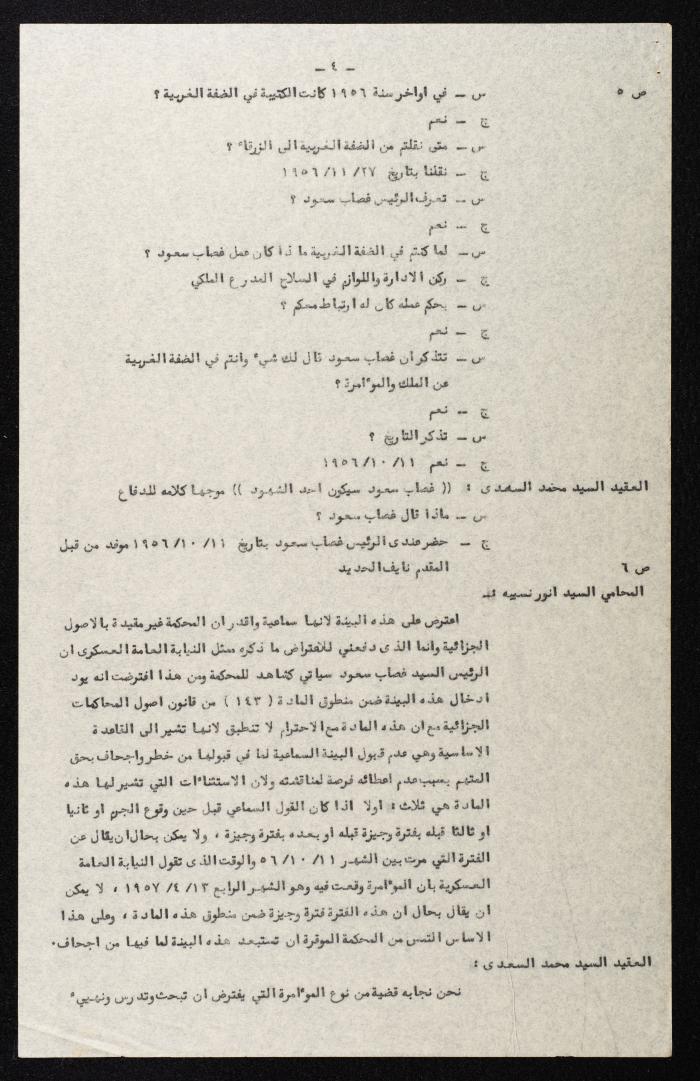 – ٤ –
ص ٥ س – في اواخر سنة ١٩٥٦ كانت الكتيبة في الضفة الغربية ؟
ج – نعم
س – متى نقلتم من الضفة الغربية الى الزرقاء ؟
ج – نقلنا بتاريخ ٢٧/ ١١/ ١٩٥٦
س – تعرف الرئيس غصاب سعود ؟
ج – نعم
س – لما كنتم في الضفة الغربية ماذا كان عمل غصاب سعود ؟
ج – ركن الادارة واللوازم في السلاح المدرع الملكي
س – بحكم عمله كان له ارتباط معكم ؟
ج – نعم
س – تتذكر ان غصاب سعود قال لك شيء وانتم في الضفة الغربية
عن الملك والموءامرة ؟
ج – نعم
س – تذكر التاريخ ؟
ج – نعم ١١/ ١٠/ ١٩٥٦
العقيد السيد محمد السعدى : (( غصاب سعود سيكون احد الشهود )) موجها كلامه للدفاع
س – ماذا قال غصاب سعود ؟
ج – حضر عندى الرئيس غصاب سعود بتاريخ ١١/ ١٠/ ١٩٥٦ موفد من قبل
المقدم نايف الحديد
ص ٦
المحامي السيد انور نسيبه :–
اعترض على هذه البينة لانها سماعية واقدر ان المحكمة غير مقيدة بالاصول
الجزائية وانما الذى دفعني للاعتراض ما ذكره ممثل النيابة العامة العسكرى ان
الرئيس السيد غصاب سعود سياتي كشاهد للمحكمة ومن هذا افترضت انه يود
ادخال هذه البينة ضمن منطوق المادة ( ١٤٣ ) من قانون اصول المحاكمات
الجزائية مع ان هذه المادة مع الاحترام لا تنطبق لانها تشير الى القاعدة
الاساسية وهي عدم قبول البينة السماعية لما في قبولها من خطر واجحاف بحق
المتهم بسبب عدم اعطائه فرصة لمناقشته ولان الاستثناءات التي تشير لها هذه
المادة هي ثلاث : اولا اذا كان القول السماعي قبل حين وقوع الجرم او ثانيا
او ثالثا قبله بفترة وجيزة قبله او بعده بفترة وجيزة ، ولا يمكن بحال ان يقال عن
الفترة التي مرت بين الشهر ١١/ ١٠/ ٥٦ والوقت الذى تقول النيابة العامة
العسكرية بان الموءامرة وقعت فيه وهو الشهر الرابع ١٣/ ٤/ ١٩٥٧ ، لا يمكن
ان يقال بحال ان هذه الفترة فترة وجيزة ضمن منطوق هذه المادة ، وعلى هذا
الاساس التمس من المحكمة الموقرة ان تستبعد هذه البينة لما فيها من اجحاف٠
العقيد السيد محمد السعدى :
نحن نجابه قضية من نوع الموءامرة التي يفترض ان تبحث وتدرس وتهييء